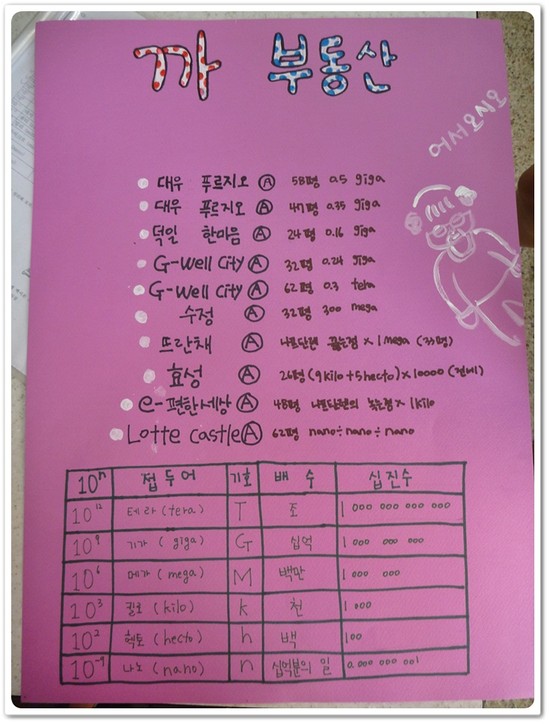 까 부동산
어서오십오
대우 푸르지오 A 58평 0.5 giga
대우 푸르지오 A 47평 0.35 giga
덕일 한마음 A 24평 0.16 giga
G-Well City A 32평 0.24 giga
G-Well City A 62평 0.3 tera
수정 A 32평 300 mega
뜨란채 A 나프탈렌 끓는점 × 1 mega (33평)
효성 A 26평 (9kilo+5hecto)×10000 (전세)
e-편한세상 A 48평 나프탈렌의 녹는점 × 1kilo
Lotte Castle A 62평 nano÷nano÷nano
10ⁿ 접두어 기호 배수 십진수
10¹² 테라 (tera) T 조 1 000 000 000 000
10⁹ 기가 (giga) G 십억 1 000 000 000
10⁶ 메가 (mega) M 백만 1 000 000
10³ 킬로 (kilo) k 천 1 000
10² 헥토 (hecto) h 백 100
10⁻⁹ 나노 (nano) n 십억분의 일 0.000 000 001